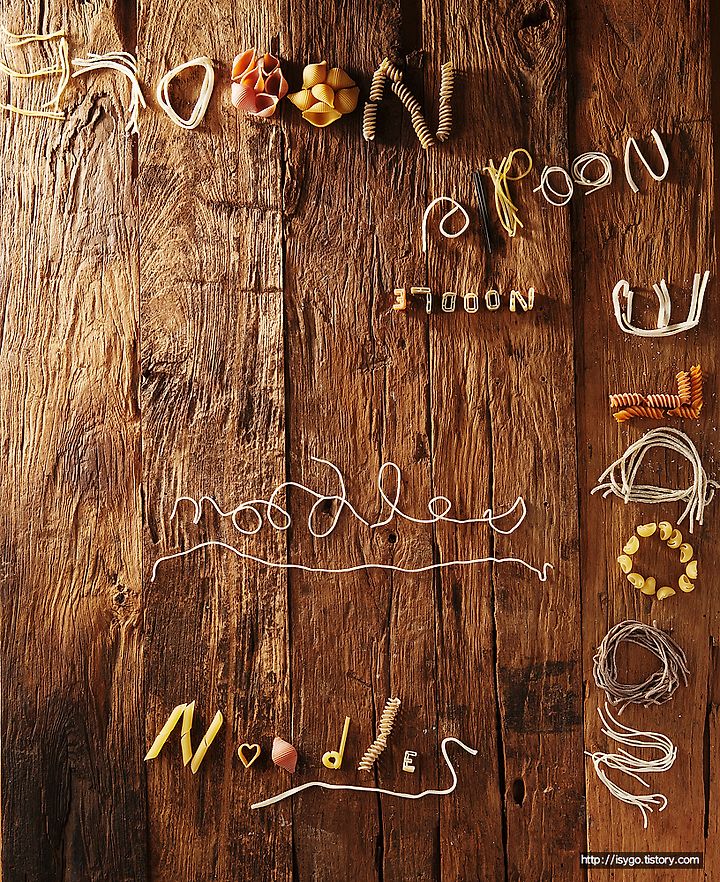 NOODLE
NOodle
NOODLE
NOODLE
noodles
Noodles
http://isygo.tistory.com